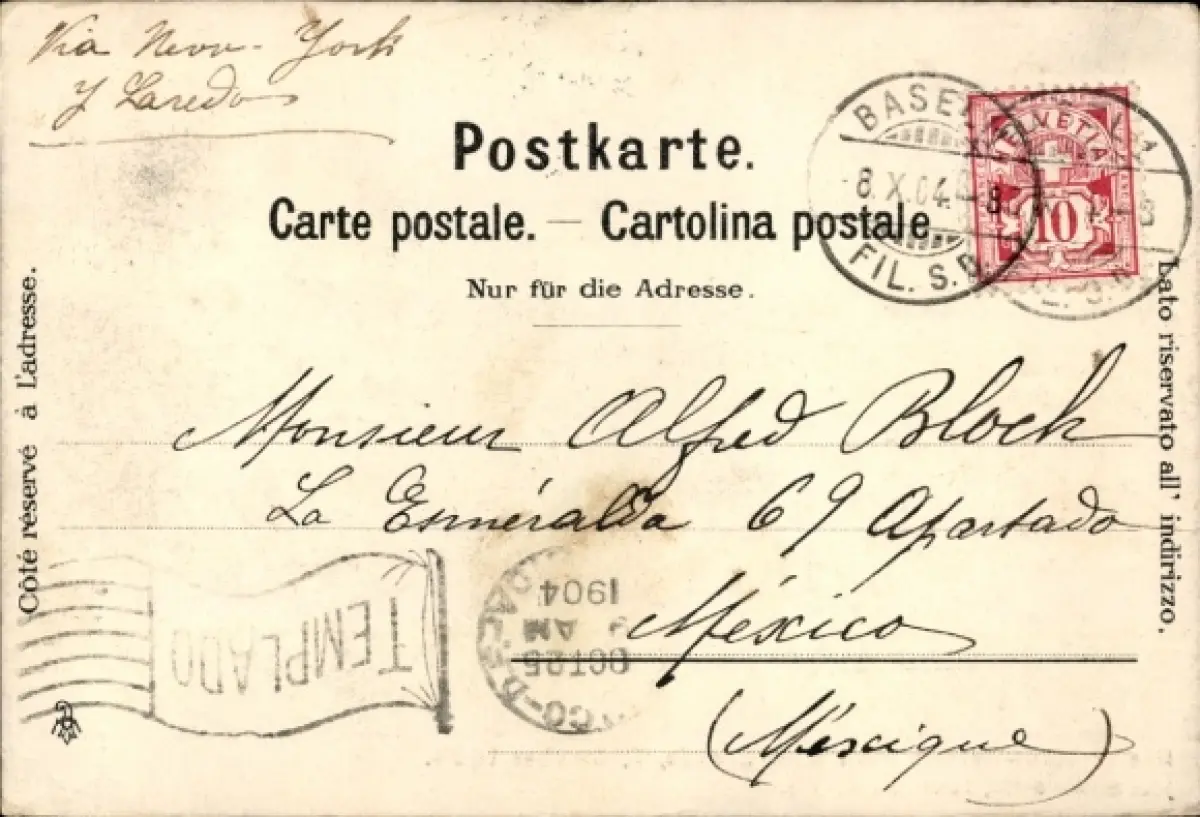 Via New-York
y Laredo
Postkarte.
Carte postale. — Cartolina postale.
Nur für die Adresse.
BASEL
8.X.04.-8
FIL. S.B.
HELVETIA
10
Côté réservé à l'adresse.
Lato riservato all' indirizzo.
Monsieur Alfred Bloch
La Esméralda 69 Apartado
México
(Méxique)
TEMPLADO
OCT 25
AM
1904